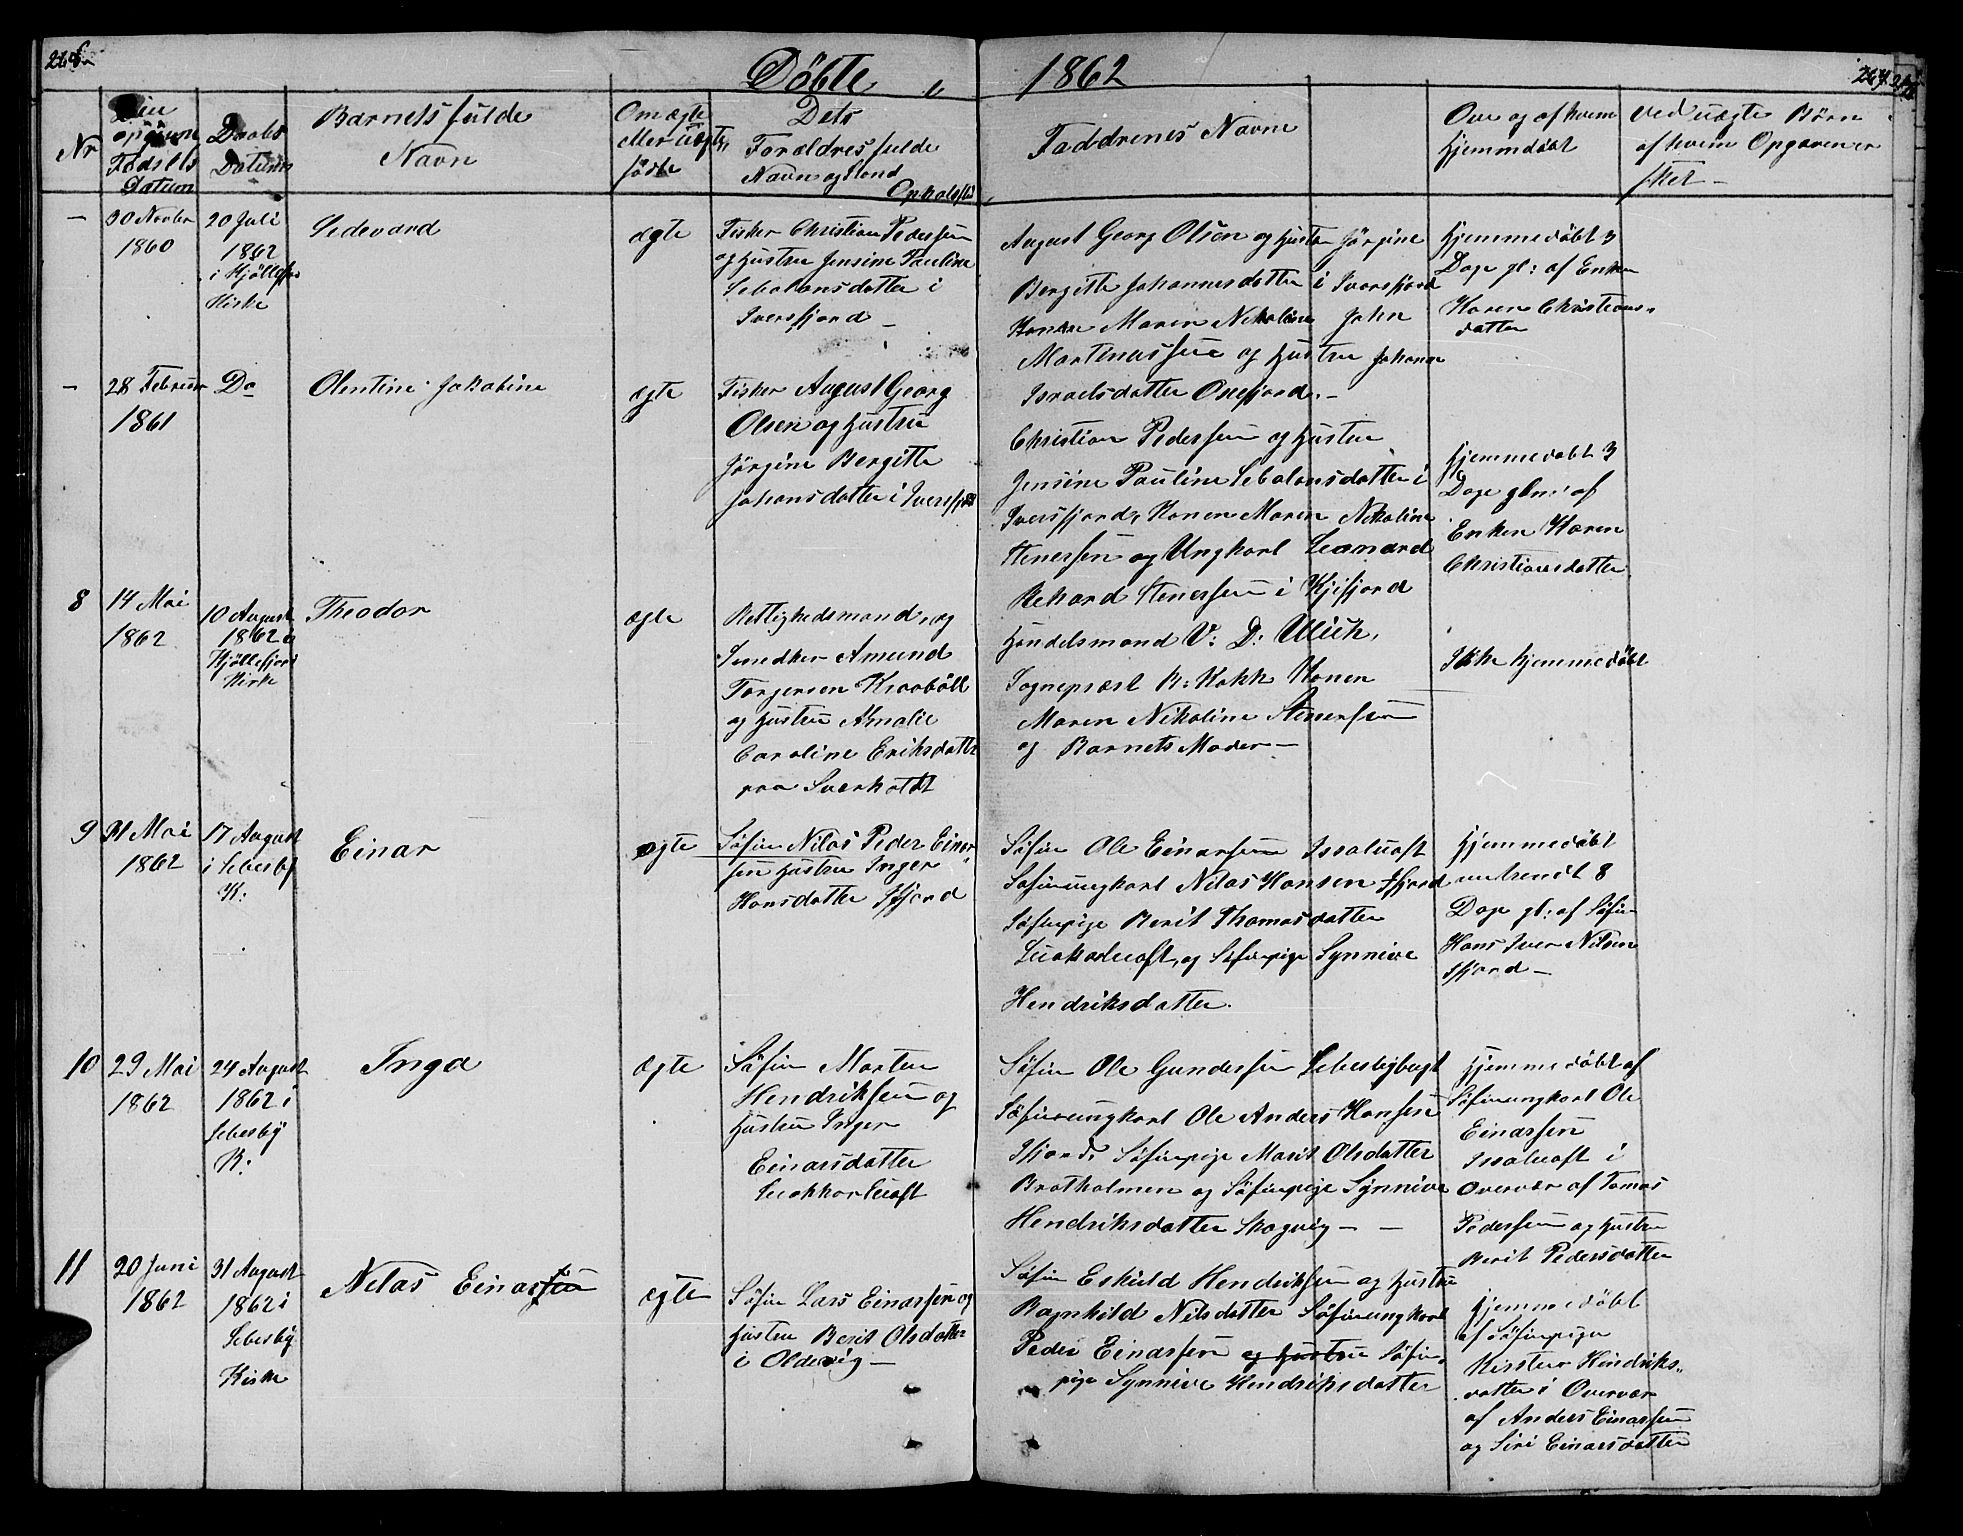 266
Döbte i 1862
267
Nr
Den opgivne Fødsels Datum
Daabs Datum
Barnets fulde Navn
Om ægte eller uægte født
Dets Forældres fulde Navn og Stand Opholdst
Faddrenes Navne
Om og af hvem hjemmedøbt
Ved uægte Børn af hvem Opgaven er sket –
–
30 Novbr
1860
20 Juli
1862
i Kjöllefjo
Kirke
Sedevard
ægte
Fisker Christian Pedersen
og Hustru Jensine Pauline
Sebolonsdatter i
Iversfjord –
August Georg Olsen og Hustru Jörgine
Bergitte Johannesdatter i Iversfjord
Konen Maren Nikoline John
Martinussen og Hustru Johana
Israelsdatter Oxefjord. –
Hjemmedöbt 3
Dage gl: af Enken
Karen Christians-
datter
–
28 Februar
1861
Do
Olentine Jakobine
ægte
Fisker August Georg
Olsen og Hustru
Jörgine Bergitte
Johansdatter i Iversfjord
Christian Pedersen og Hustru
Jensine Pauline Sebolonsdatter i
Iversfjord, Konen Maren Nikoline
Stenersen og Ungkarl Leonard
Rekard Stenersen i Kjefjord
Hjemmedöbt 3
Dage glm: af
Enken Karen
Christiansdatter
8
14 Mai
1862
10 August
1862 i
Kjöllefjord
Kirke
Theodor
ægte
Rettighedsmand og
Snedker Amund
Torgersen Kraaböll
og Hustru Amalie
Caroline Eriksdatter
paa Sværholdt
Handelsmand V: D: Ulich,
Sognepræst B: Kokk Konen
Maren Nikoline Stenersen
og Barnets Moder –
Ikke hjemmedöbt
9
31 Mai
1862
17 August
i Lebesby
K:
Einar
ægte
Söfin Nilas Peder Einar
sen Hustru Inger
Hansdatter Ifjord
Söfin Ole Einarsen Issaluoft
Söfinungkarl Nilas Hansen Ifjord
Söfinpige Berit Thomasdatter
Luokaluoft, og Söfinpige Synnive
Hendriksdatter.
Hjemmedöbt
omtrendt 8
Dage gl: af Söfin
Hans Iver Nilsen
Ifjord –
10
29 Mai
1862
24 August
1862 i
Lebesby
K:
Inga
ægte
Söfin Morten
Hendriksen og
Hustru Inger
Einarsdatter
Luokkarluoft
Söfin Ole Gundersen Lebesbybugt
Söfinungkarl Ole Anders Hansen
Ifjord, Söfinpige Marit Olsdatter
Bratholmen og Söfinpige Synnive
Hendriksdatter Skogvig – –
Hjemmedöbt af
Söfinungkarl Ole
Einarsen
Issaluoft i
Overvær af Tomas
Pedersen og Hustru
Berit Pedersdatter
11
20 Juni
1862
31 August
1862 i
Lebesby
Kirke
Nilas Einarsen
ægte
Söfin Lars Einarsen og
Hustru Berit Olsdatter
i Oldevig –
Söfin Eskild Hendriksen og Hustru
Ragnhild Nilsdatter Söfinungkarl
Peder Einarsen og Hustru Söfin-
pige Synnive Hendriksdatter
Hjemmedöbt
af Söfinpigen
Kirsten Hindriks-
datter i Overvær
af Anders Einarsen
og Siri Einarsdatter